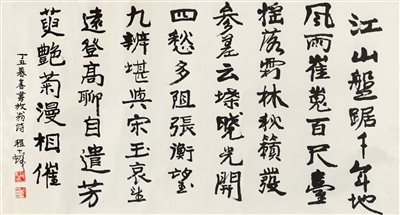 江山盤踞千年地
風雨崔嵬百尺臺
搖落霜林秋籟發
參差云堞曉光開
四愁多阻張衡望
九辨堪與宋玉哀
遠登高聊自遣芳
萸艷菊漫相催
丁丑暮春書牧翁詩 程十髮